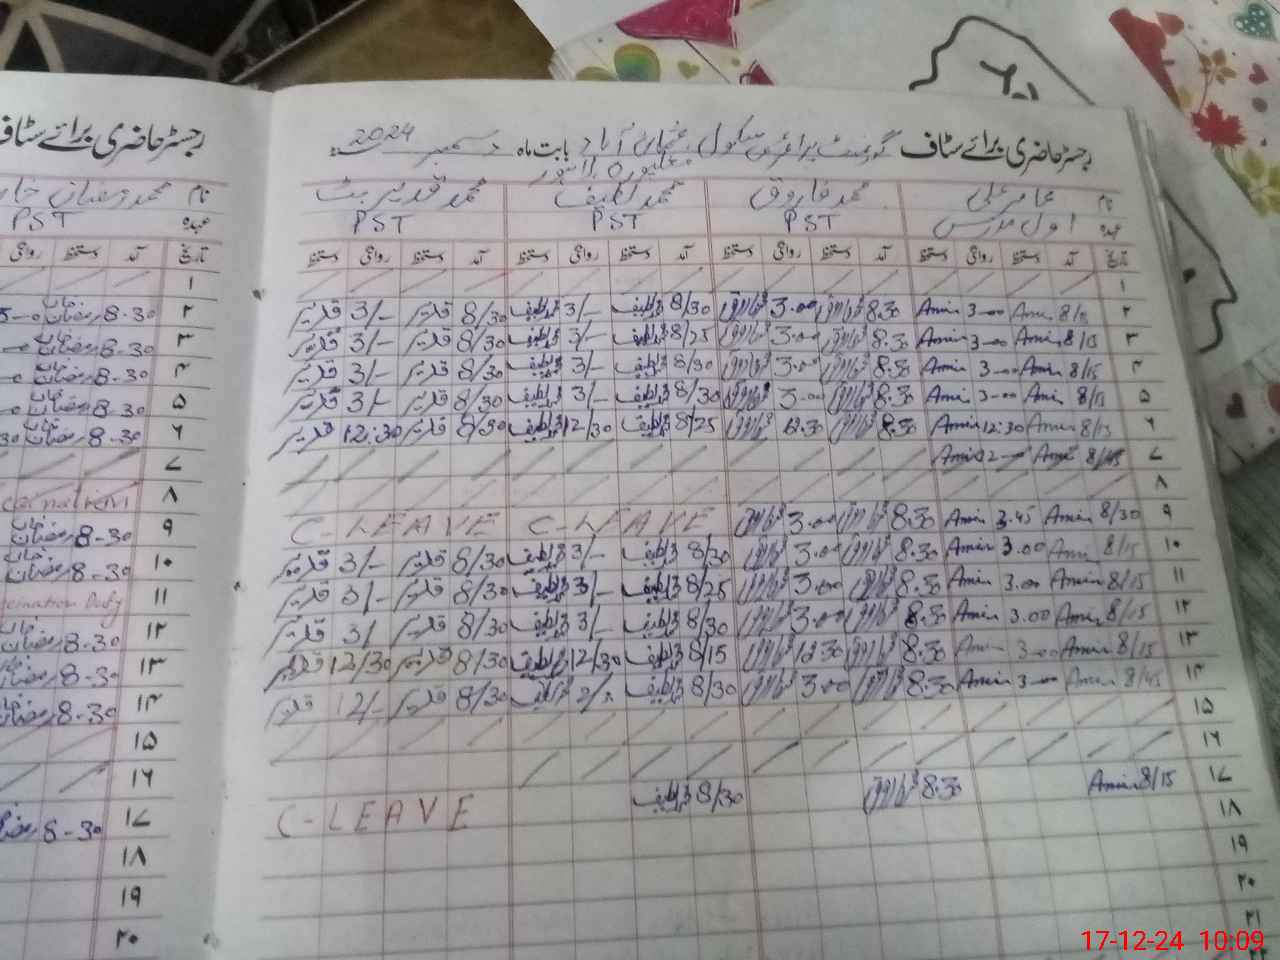 رجسٹر حاضری برائے سٹاف گورنمنٹ پرائمری سکول عثمان آباد بابت ماہ دسمبر 2024
رجسٹر حاضری برائے سٹاف
مغلپورہ لاہور
نام عامر علی محمد فاروق محمد لطیف محمد قدیر بٹ
نام محمد رمضان
عہدہ اول مدرس PST PST PST
عہدہ PST
تاریخ آمد دستخط روانگی دستخط آمد دستخط روانگی دستخط آمد دستخط روانگی دستخط آمد دستخط روانگی دستخط
تاریخ آمد دستخط روانگی
۱
۲ 8/15 Amir 3-00 Amir 8.30 فاروق 3.00 فاروق 8/30 لطیف 3/- لطیف 8/30 قدیر 3/- قدیر
۳ 8/15 Amir 3-00 Amir 8.30 فاروق 3.00 فاروق 8/25 لطیف 3/- لطیف 8/30 قدیر 3/- قدیر
۴ 8/15 Amir 3-00 Amir 8.30 فاروق 3.00 فاروق 8/30 لطیف 3/- لطیف 8/30 قدیر 3/- قدیر
۵ 8/15 Amir 3-00 Amir 8.30 فاروق 3.00 فاروق 8/30 لطیف 3/- لطیف 8/30 قدیر 3/- قدیر
۶ 8/15 Amir 12:30 Amir 8.30 فاروق 12.30 فاروق 8/25 لطیف 12/30 لطیف 8/30 قدیر 12:30 قدیر
۷ 8/45 Amir 12-00 Amir
۸
۹ 8/30 Amir 3.45 Amir 8.30 فاروق 3.00 فاروق C-LEAVE C-LEAVE
۱۰ 8/15 Amir 3.00 Amir 8.30 فاروق 3.00 فاروق 8/20 لطیف 3/- لطیف 8/30 قدیر 3/- قدیر
۱۱ 8/15 Amir 3.00 Amir 8.30 فاروق 3.00 فاروق 8/25 لطیف 3/- لطیف 8/30 قدیر 3/- قدیر
۱۲ 8/15 Amir 3.00 Amir 8.30 فاروق 3.00 فاروق 8/30 لطیف 3/- لطیف 8/30 قدیر 3/ قدیر
۱۳ 8/15 Amir 3-00 Amir 8.30 فاروق 12.30 فاروق 8/15 لطیف 12/30 لطیف 8/30 قدیر 12/30 قدیر
۱۴ 8/45 Amir 3-00 Amir 8.30 فاروق 3.00 فاروق 8/30 لطیف لطیف 8/30 قدیر 12/- قدیر
۱۵
۱۶
۱۷ 8/15 Amir 8.30 فاروق 8/30 لطیف C-LEAVE
۱۸
۱۹
۲۰
۲۱
۲۲
۱
۲ 8-30 رمضان
۳ 8-30 رمضان
۴ 8-30 رمضان
۵ 8-30 رمضان
۶ 8-30 رمضان
۷
۸
۹ 8-30 رمضان
۱۰ 8-30 رمضان
۱۱ Duty
۱۲ 8-30 رمضان
۱۳ 8-30 رمضان
۱۴ 8-30 رمضان
۱۵
۱۶
۱۷ 8-30
۱۸
۱۹
۲۰
17-12-24 10:09